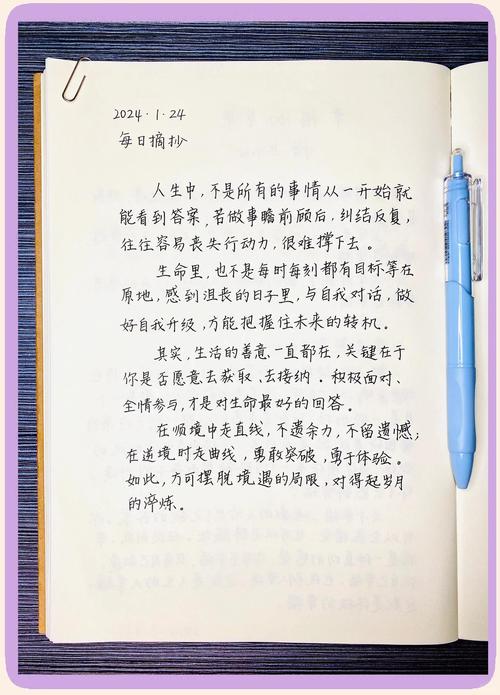 2024·1·24
每日摘抄
人生中,不是所有的事情从一开始就
能看到答案,若做事瞻前顾后,纠结反复,
往往容易丧失行动力,很难撑下去。
生命里,也不是每时每刻都有目标等在
原地,感到沮丧的日子里,与自我对话,做
好自我升级,方能把握住未来的转机。
其实,生活的善意一直都在,关键在于
你是否愿意去获取、去接纳。积极面对、
全情参与,才是对生命最好的回答。
在顺境中走直线,不遗余力,不留遗憾;
在逆境时走曲线,勇敢突破,勇于体验。
如此,方可摆脱境遇的局限,对得起岁月
的淬炼。